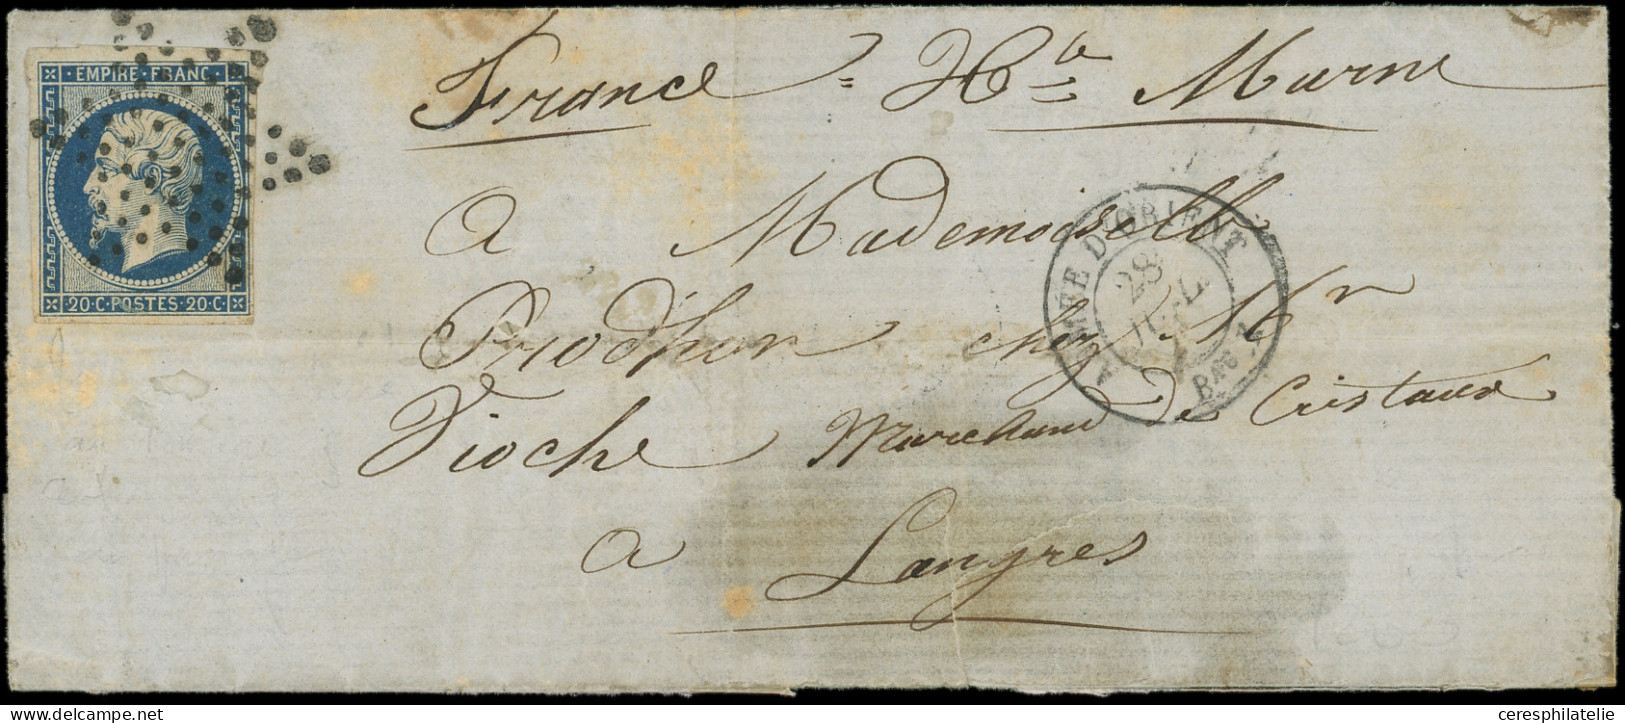 EMPIRE · FRANC ·
20·C·POSTES·20·C·
France = Hte Marne
A Mademoiselle
Prodhon chez Mr
Vioche Marchand De Cristaux
a Langres
ARMEE D'ORIENT
28
JUIL.
Bau
ceresphilatelie